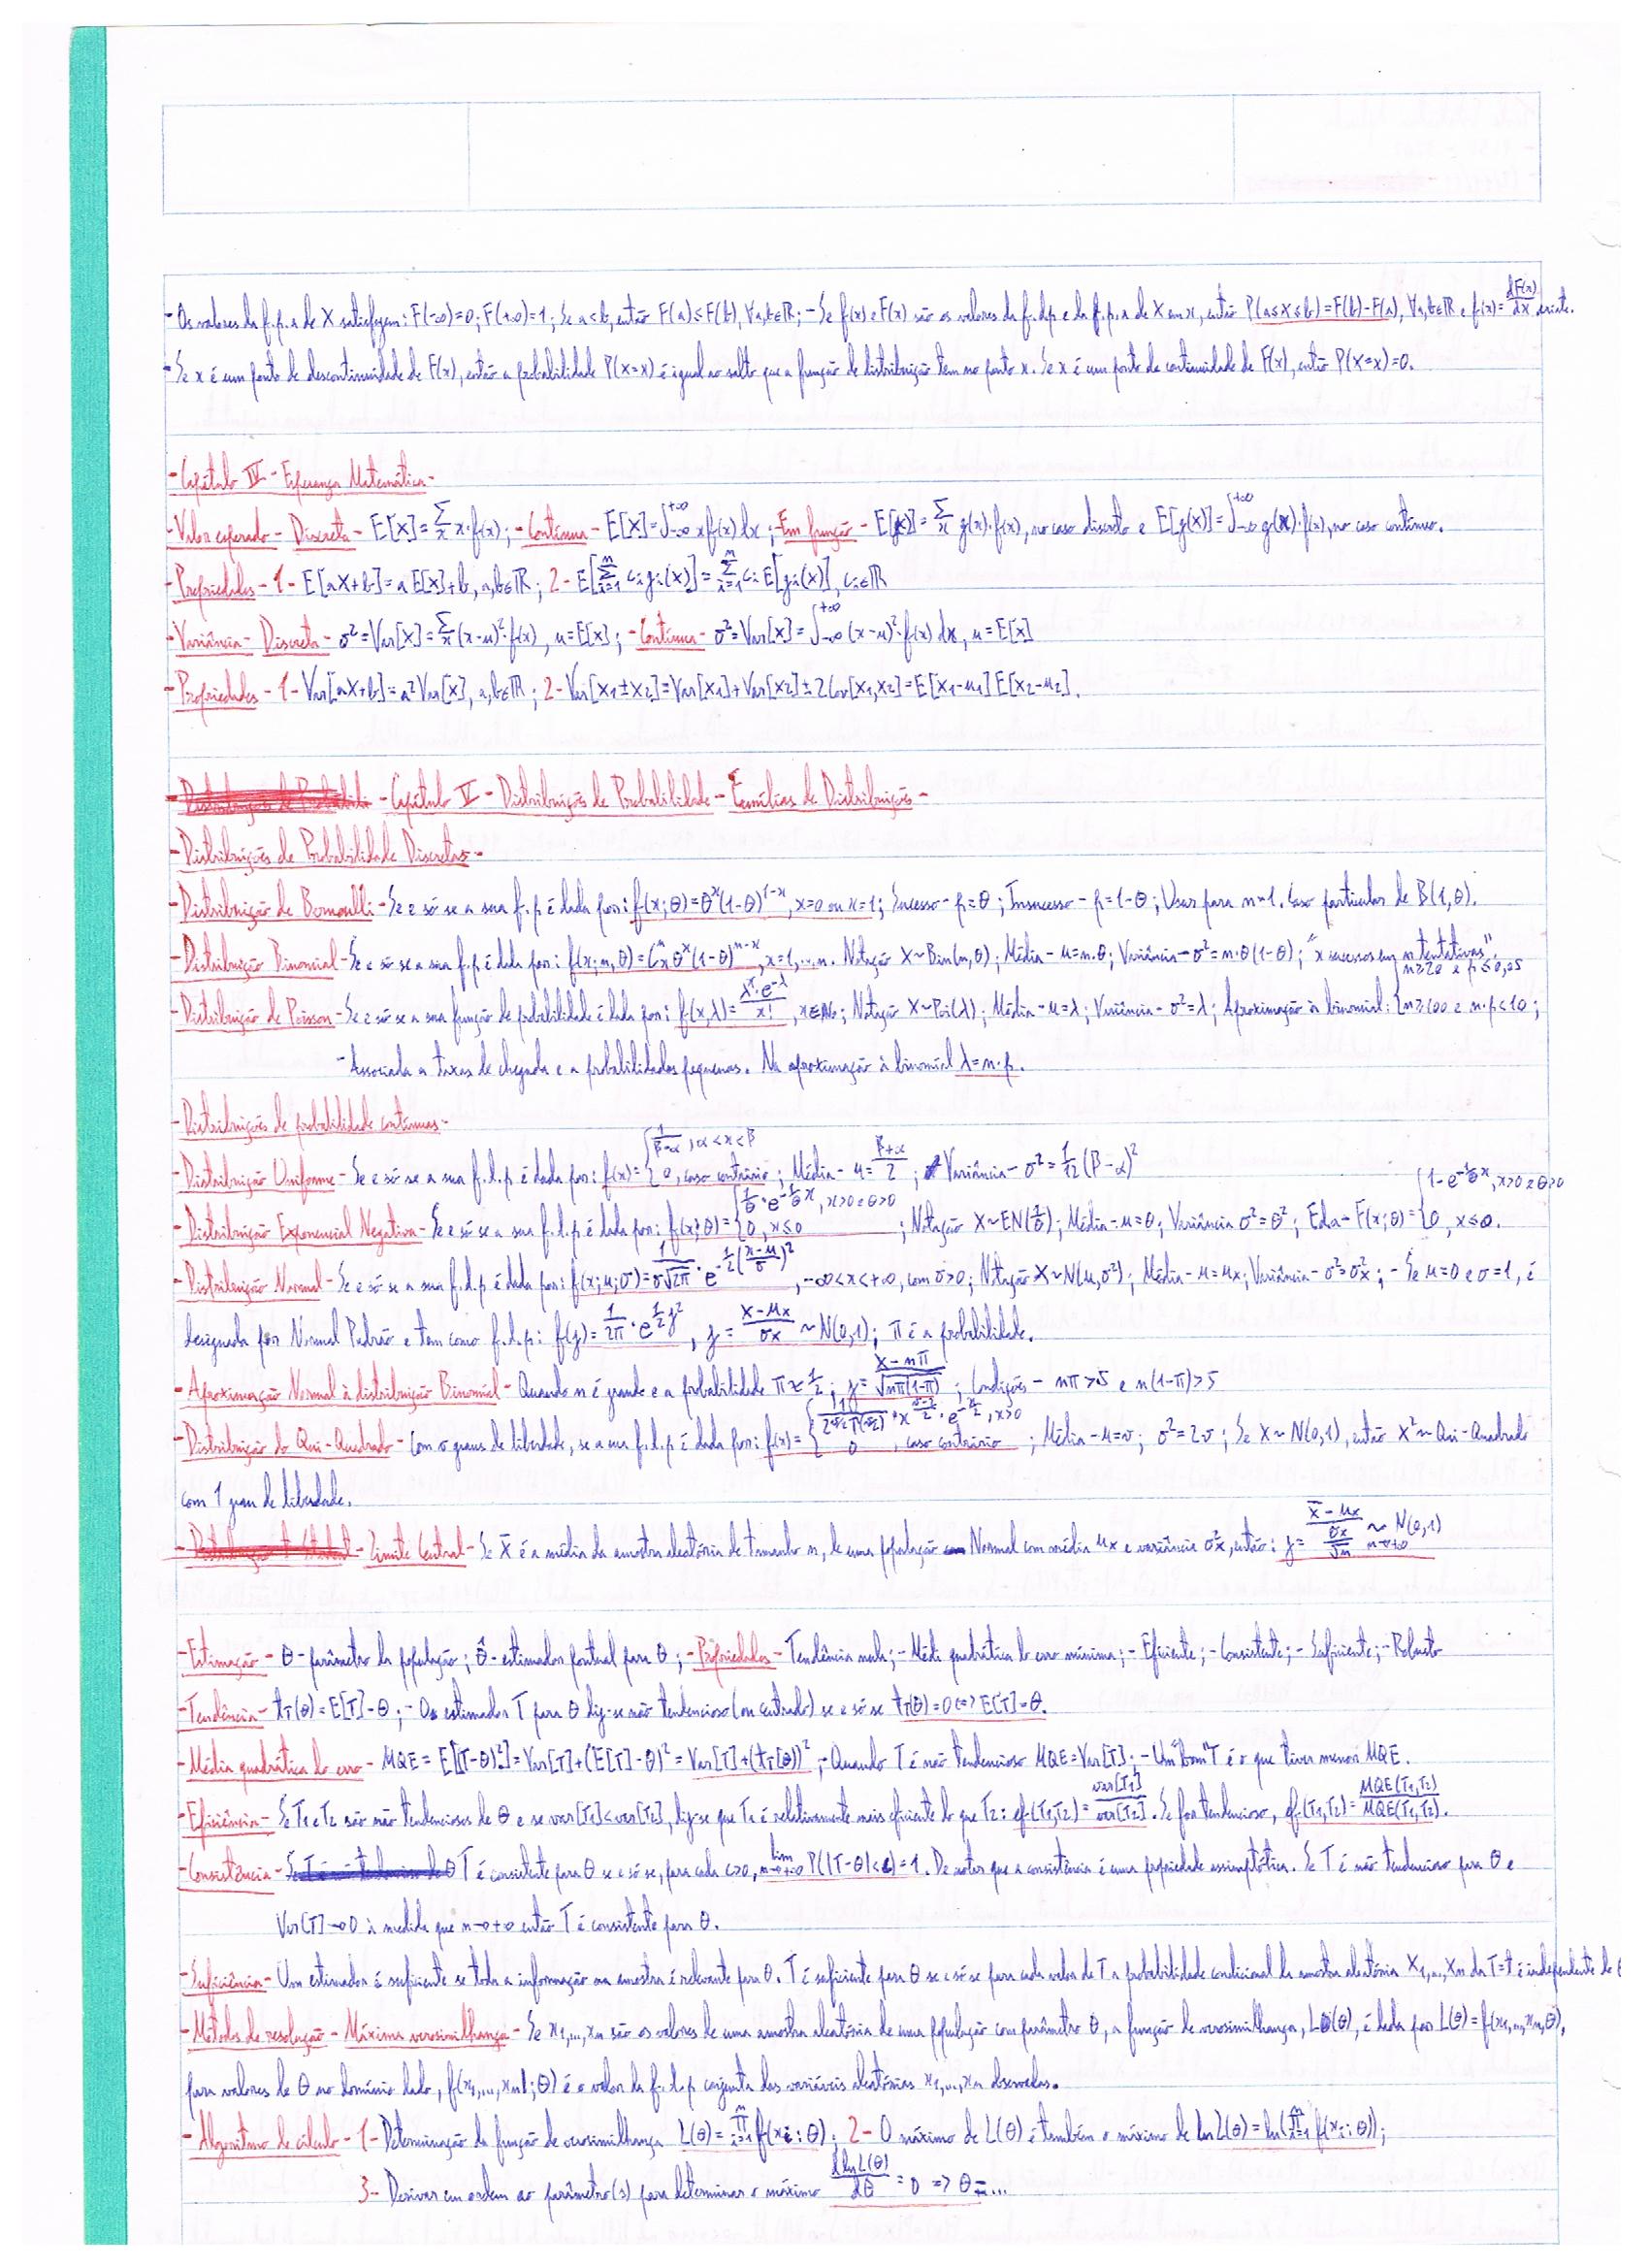 - Os valores da f.p.a de X satisfazem: F(-∞)=0; F(+∞)=1; Se a<b, então F(a)≤F(b), ∀a,b∈ℝ; - Se f(x) e F(x) são os valores da f.d.p e da f.p.a de X em x, então P(a≤X≤b)=F(b)-F(a), ∀a,b∈ℝ e f(x)=dF(x)/dx, existe.
- Se x é um ponto de descontinuidade de F(x), então a probabilidade P(X=x) é igual ao salto que a função de distribuição tem no ponto x. Se x é um ponto de continuidade de F(x), então P(X=x)=0.
- Capítulo IV - Esperança Matemática -
- Valor esperado - Discreta - E[X]=∑x x·f(x); - Contínua - E[X]=∫-∞+∞ x f(x) dx; - Em função - E[g(x)]=∑x g(x)·f(x), no caso discreto e E[g(x)]=∫-∞+∞ g(x)·f(x), no caso contínuo.
- Propriedades - 1 - E[aX+b]=aE[X]+b, a,b∈ℝ; 2 - E[∑i=1n ci gi(x)]=∑i=1n ci E[gi(x)], ci∈ℝ
- Variância - Discreta - σ²=Var[X]=∑x (x-μ)²·f(x), μ=E[X]; - Contínua - σ²=Var[X]=∫-∞+∞ (x-μ)²·f(x) dx, μ=E[X]
- Propriedades - 1 - Var[aX+b]=a²Var[X], a,b∈ℝ; 2 - Var[X1±X2]=Var[X1]+Var[X2]±2Cov[X1,X2]=E[X1-μ1]E[X2-μ2].
- Capítulo V - Distribuições de Probabilidade - Famílias de Distribuições -
- Distribuições de Probabilidade Discretas -
- Distribuição de Bernoulli - Se e só se a sua f.p é dada por: f(x;θ)=θ^x(1-θ)^1-x, x=0 ou x=1; Sucesso - p=θ; Insucesso - p=1-θ; Usar para n=1. Caso particular de B(1,θ).
- Distribuição Binomial - Se e só se a sua f.p é dada por: f(x;n,θ)=C^n_x θ^x(1-θ)^n-x, x=1,...,n. Notação X~Bin(n,θ); Média - μ=n.θ; Variância - σ²=n·θ(1-θ); "x sucessos em n tentativas".
- Distribuição de Poisson - Se e só se a sua função de probabilidade é dada por: f(x,λ)=λ^x·e^-λ/x!, x∈ℕ0; Notação X~Poi(λ); Média - μ=λ; Variância - σ²=λ; Aproximação à binomial: { n≥20 e p≤0,05 n≥100 e n·p<10;
- Associada a taxas de chegada e a probabilidades pequenas. Na aproximação à binomial λ=n·p.
- Distribuições de probabilidade contínuas -
- Distribuição Uniforme - Se e só se a sua f.d.p é dada por: f(x)={ 1/β-α, α<x<β 0, caso contrário; Média - μ=β+α/2; Variância - σ²=1/12(β-α)²
- Distribuição Exponencial Negativa - Se e só se a sua f.d.p é dada por: f(x;θ)={ 1/θ·e^-1/θ x, x>0 e θ>0 0, x≤0; Notação X~EN(1/θ); Média - μ=θ; Variância σ²=θ²; F.d.a - F(x;θ)={ 1-e^-1/θ x, x>0 e θ>0 0, x≤0.
- Distribuição Normal - Se e só se a sua f.d.p é dada por: f(x;μ;σ)=1/σ√2π·e^-1/2(x-μ/σ)², -∞<x<+∞, com σ>0; Notação X~N(μ,σ²); Média - μ=μx; Variância - σ²=σ²x; - Se μ=0 e σ=1, é
designada por Normal Padrão e tem como f.d.p: f(z)=1/2π·e^1/2 z², z=X-μx/σx ~N(0,1); π é a probabilidade.
- Aproximação Normal à distribuição Binomial - Quando n é grande e a probabilidade π≈1/2; z=X-nπ/√nπ(1-π); Condições - nπ>5 e n(1-π)>5
- Distribuição do Qui-Quadrado - Com υ graus de liberdade, se a sua f.d.p é dada por: f(x)={ 1/2^υ/2 Γ(υ/2)·x^υ-2/2·e^-x/2, x>0 0, caso contrário; Média - μ=υ; σ²=2υ; Se X~N(0,1), então X²~Qui-Quadrado
com 1 grau de liberdade.
- Limite Central - Se X̄ é a média da amostra aleatória de tamanho n, de uma população Normal com média μx e variância σ²x, então: z=X̄-μx/σx/√n ~ N(0,1) n→+∞
- Estimação - θ - parâmetro da população; θ̂ - estimador pontual para θ; - Propriedades - Tendência nula; - Médi quadrática do erro mínima; - Eficiente; - Consistente; - Suficiente; - Robusto
- Tendência - tT(θ)=E[T]-θ; - O estimador T para θ diz-se não tendencioso (ou centrado) se e só se tT(θ)=0 <=> E[T]=θ.
- Média quadrática do erro - MQE=E[(T-θ)²]=Var[T]+(E[T]-θ)²=Var[T]+(tT(θ))²; - Quando T é não tendencioso MQE=Var[T]; - Um "bom" T é o que tiver menor MQE.
- Eficiência - Se T1 e T2 são não tendenciosos de θ e se var[T1]<var[T2], diz-se que T1 é relativamente mais eficiente do que T2: ef(T1,T2)=var[T1]/var[T2]. Se for tendencioso, ef(T1,T2)=MQE(T1,T2)/MQE(T1,T2).
- Consistência - T é consistente para θ se e só se, para cada c>0, lim n→+∞ P(|T-θ|<c)=1. De notar que a consistência é uma propriedade assimptótica. Se T é não tendencioso para θ e
Var[T]→0 à medida que n→+∞ então T é consistente para θ.
- Suficiência - Um estimador é suficiente se toda a informação na amostra é relevante para θ. T é suficiente para θ se e só se para cada valor de T a probabilidade condicional da amostra aleatória X1,...,Xn da T=t é independente de
- Métodos de resolução - Máxima verosimilhança - Se x1,...,xn são os valores de uma amostra aleatória de uma população com parâmetro θ, a função de verosimilhança, L(θ), é dada por L(θ)=f(x1,...,xn,θ),
para valores de θ no domínio dado, f(x1,...,xn;θ) é o valor da f.d.p conjunta das variáveis aleatórias x1,...,xn observadas.
- Algoritmo de cálculo - 1 - Determinação da função de verosimilhança L(θ)=∏i=1n f(xi;θ); 2 - O máximo de L(θ) é também o máximo de ln L(θ)=ln(∏i=1n f(xi;θ));
3 - Derivar em ordem ao parâmetro(s) para determinar o máximo d ln L(θ)/dθ=0 => θ=...